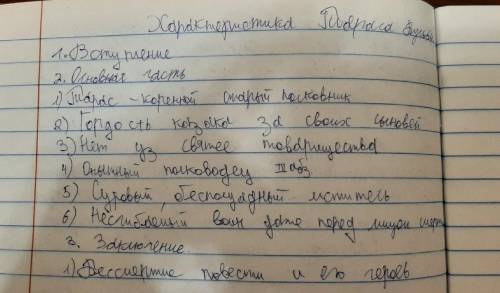 Характеристика Тараса Бульбы
1. Вступление
2. Основная часть
1) Тарас - коренной старый полковник
2) Гордость козака за своих сыновей
3) Нет уз святее товарищества
4) Опытный полководец III абз.
5) Суровый, беспощадный мститель
6) Несгибаемый воин даже перед лицом смерти
3. Заключение.
1) Бессмертие повести и его героев